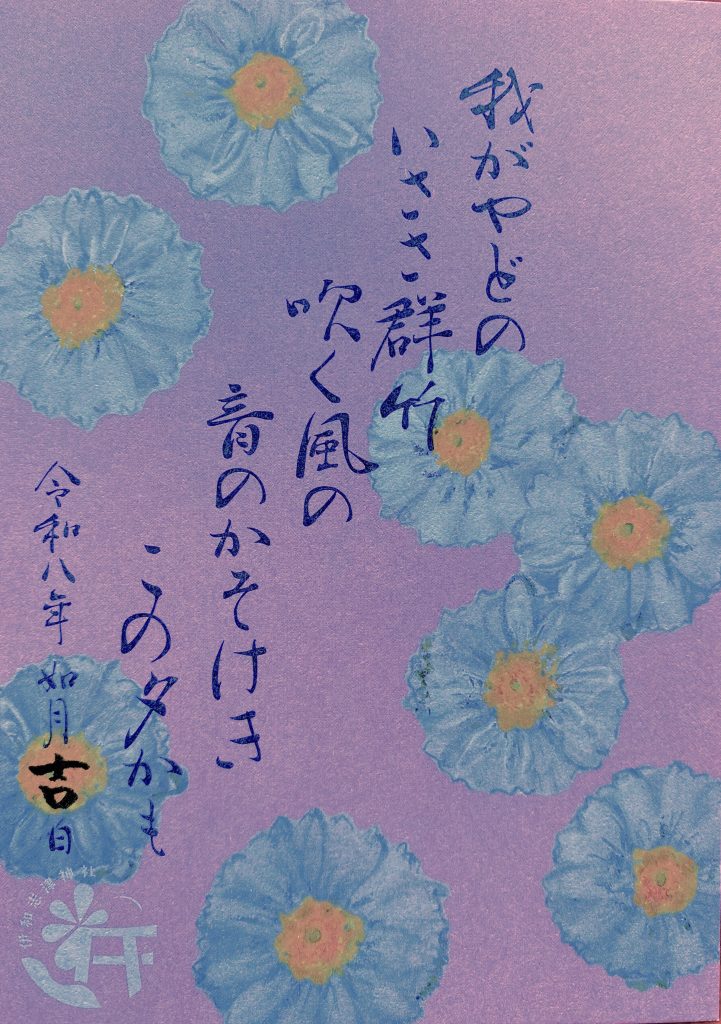 我がやどの
いささ群竹
吹く風の
音のかそけき
この夕かも
令和八年 如月吉日
伊和志津神社